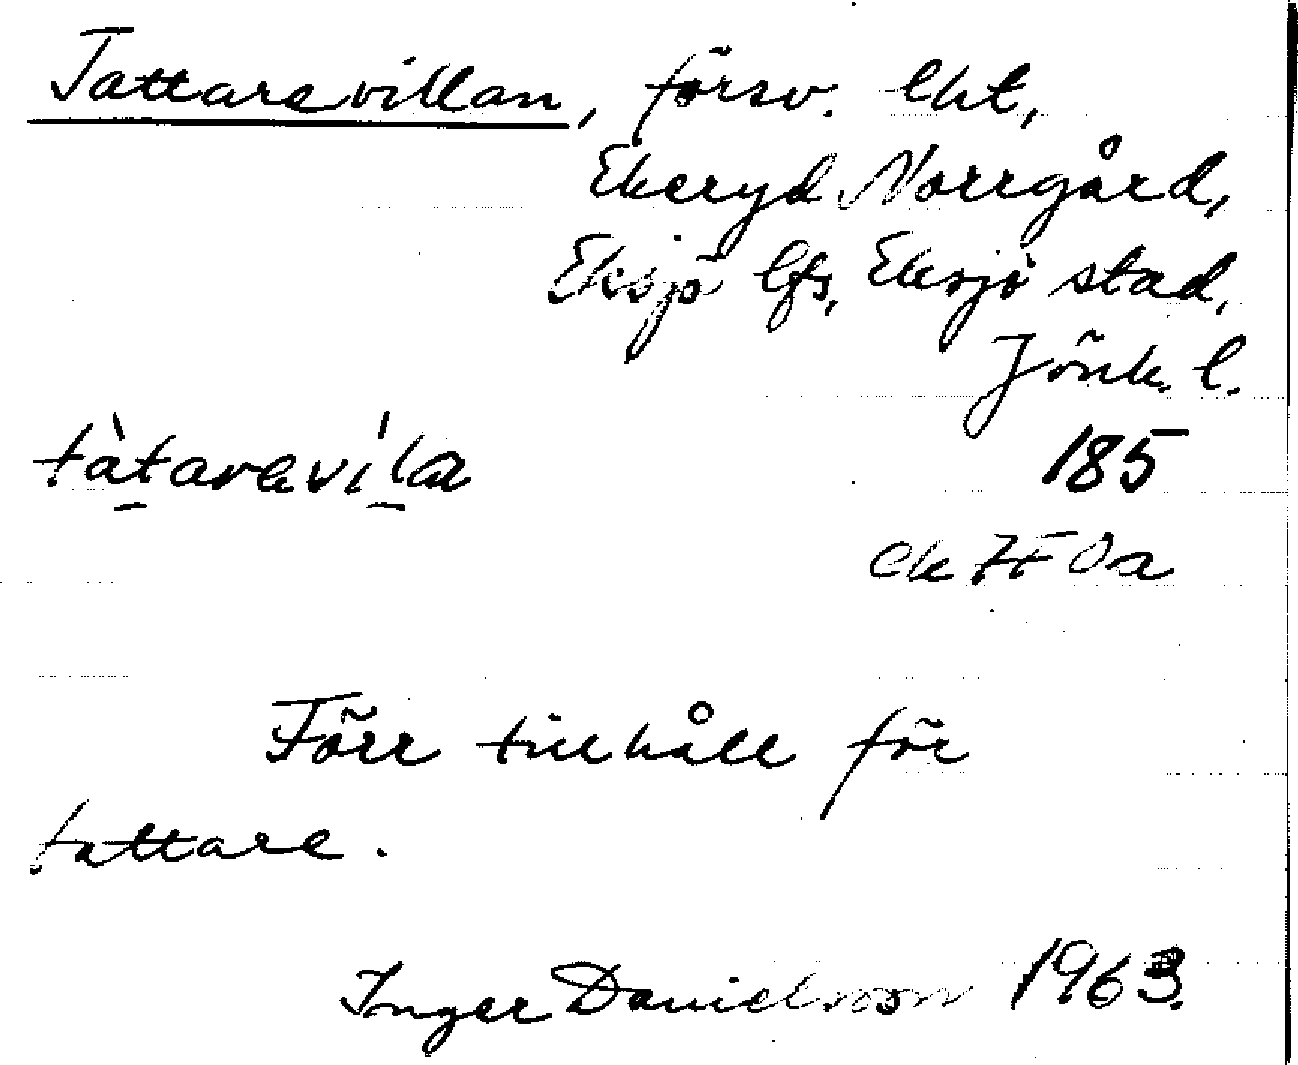 Tattarevillan, försv. lht,
Ekeryd Norrgård,
Eksjö lfs, Eksjö stad,
Jönk. l.
tàtarevi̍la 185
ek 7F 0a
Förr tillhåll för
tattare.
Inger Danielsson 1963.